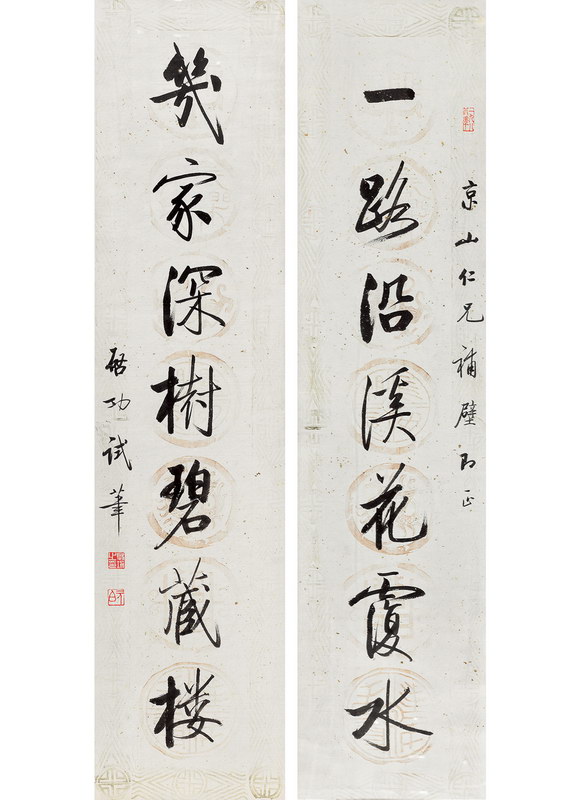 京山仁兄補壁即正
一路沿溪花覆水
幾家深樹碧藏楼
啓功试笔